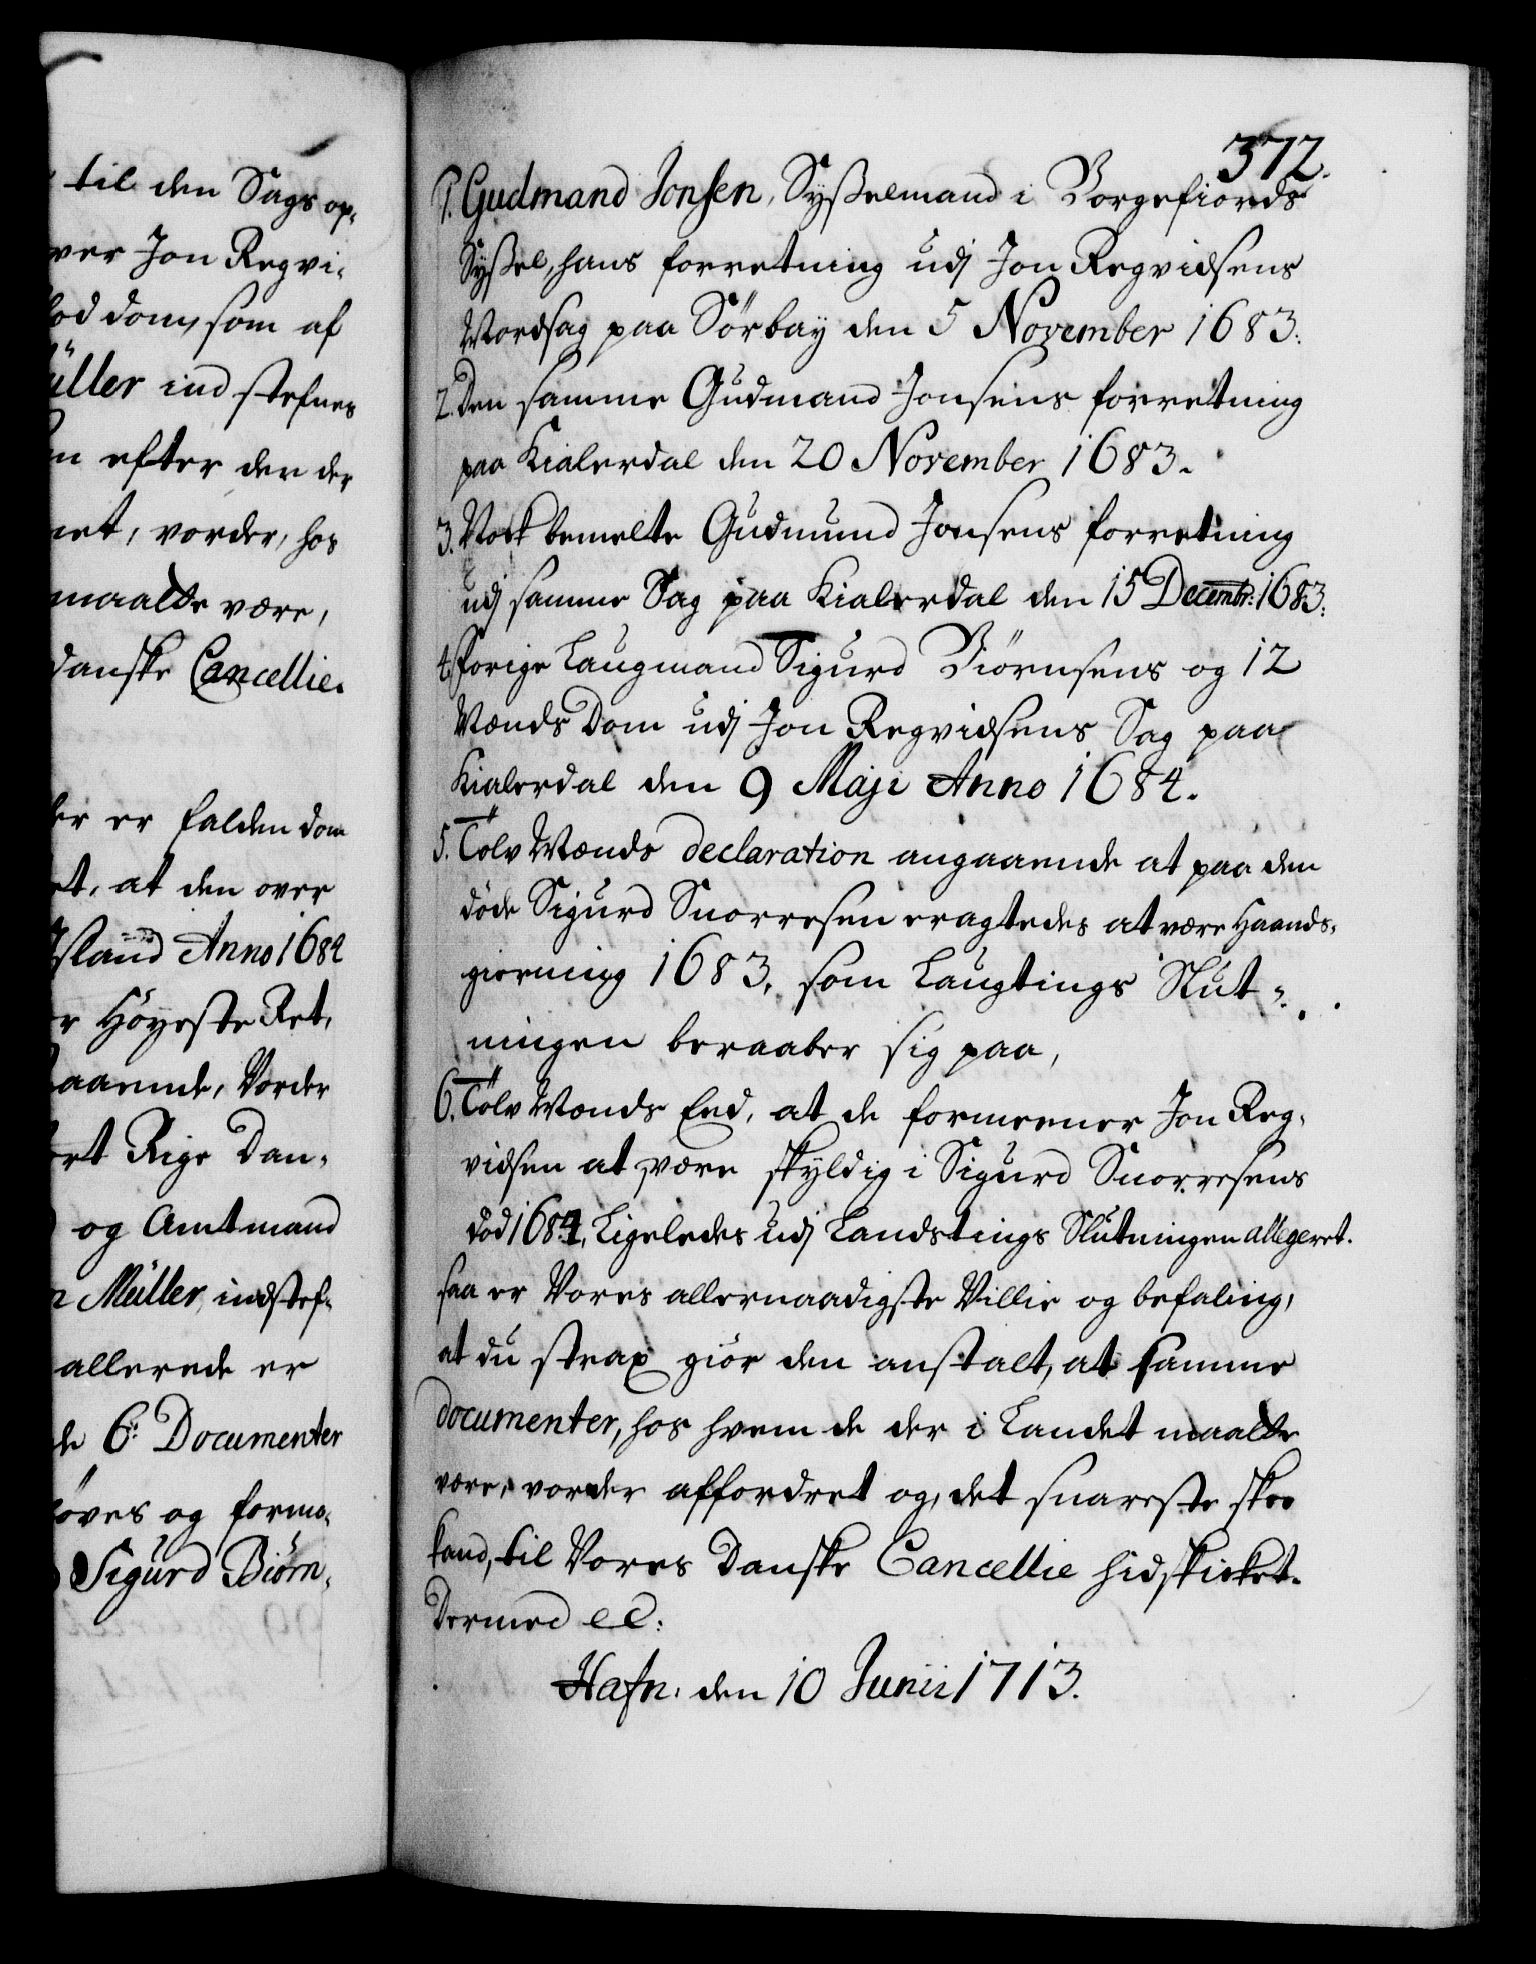 til den Sags op-
ver Jon Regvi-
dom, som af
üller ind stefnes
efter den der
vorder, hos
maatte være,
danske Cancellie.
er falden dom
at den over
Island Anno 1684
Höyeste Ret,
Vorder
Rige Dan-
og Amtmand
Müller, indstef-
allerede er
de 6: Documenter
og forma-
Sigurd Biörn-
372.
1. Gudmand Jonsen, Sysselmand i Borgefiords
Syssel, hans forretning udj Jon Regvidsens
Mordsag paa Sörbay den 5 November 1683.
2. Den samme Gudmand Jonsens forretning
paa Kialerdal den 20 November 1683.
3. Vel bemelte Gudmund Jonsens forretning
udj samme Sag paa Kialerdal den 15 Decembr: 1683.
4. Forige Laugmand Sigurd Biörnsens og 12
Mænds Dom udj Jon Regvidsens Sag paa
Kialerdal den 9 Maji Anno 1684.
5. Tolv Mænds declaration angaaende at paa den
döde Sigurd Snorresen eragtedes at være Haands-
gierning 1683, som Laugtings Slut-
ningen beraaber sig paa,
6. Tolv Mænds Eed, at de formeener Jon Reg-
vidsen at være skyldig i Sigurd Snorresens
död 1684, Ligeledes udj Landstings Slutningen allegeret.
saa er Vores allernaadigste Villie og befaling,
at du strax giör den anstalt, at samme
documenter, hos hvem de der i Landet maatte
være, vorder affordret og, det snareste skee
kand, til Vores Danske Cancellie hidskicket.
Dermed ec:
Hafn: den 10 Junii 1713.